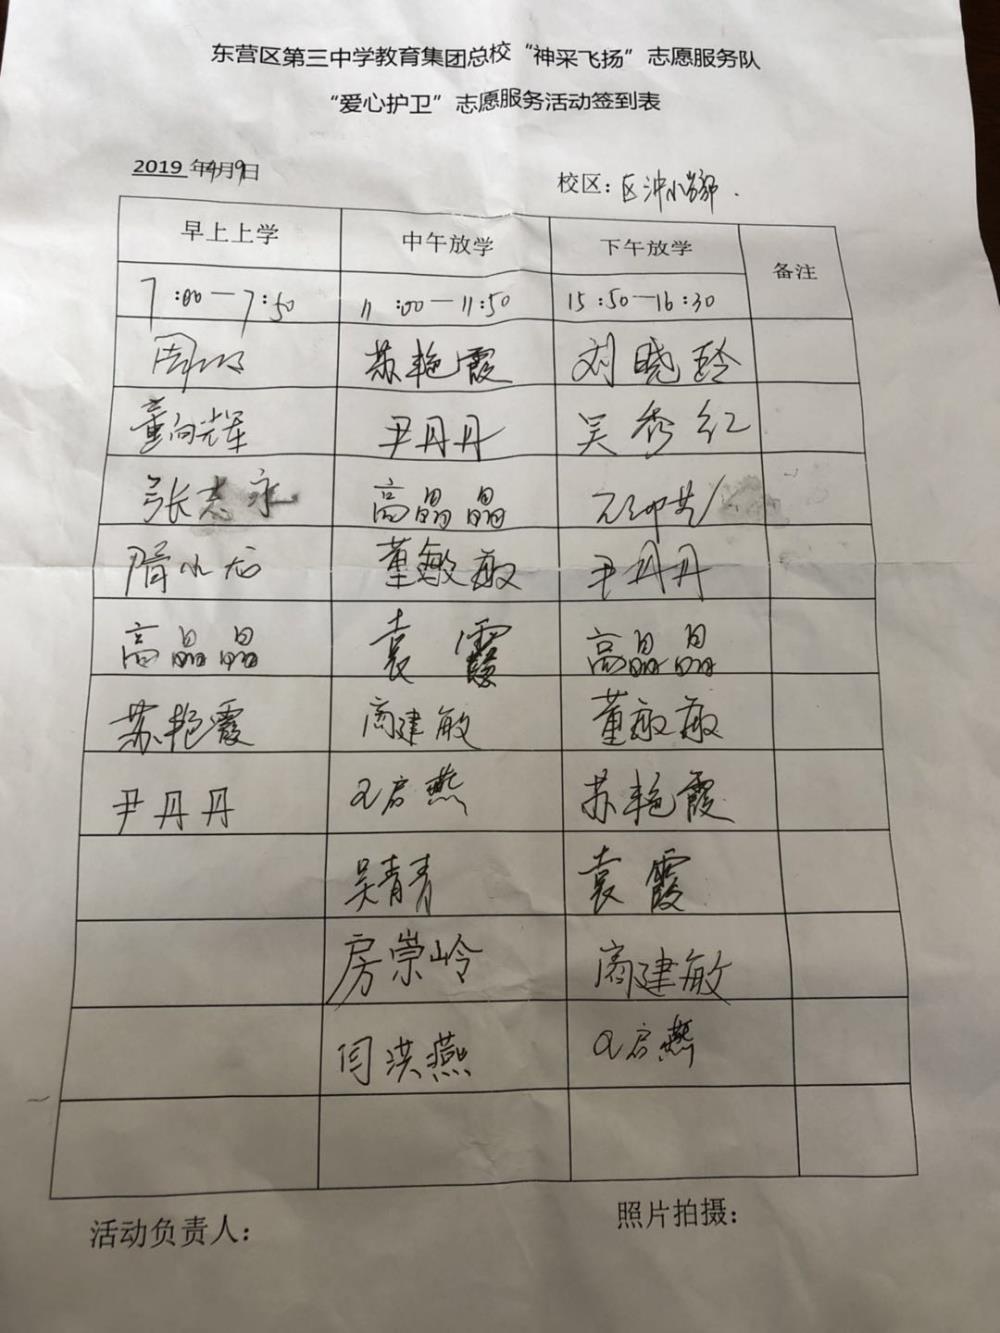 东营区第三中学教育集团总校“神采飞扬”志愿服务队
“爱心护卫”志愿服务活动签到表
2019 年4月9日
校区：区沖小学部.
早上上学 中午放学 下午放学 备注
7:00—7:50 11:00—11:50 15:50—16:30
苏艳霞 刘晓玲
董向辉 尹丹丹 吴秀红
张志永 高晶晶
隋小龙 董敏敏 尹丹丹
高晶晶 袁霞 高晶晶
苏艳霞 商建敏 董敏敏
尹丹丹 启燕 苏艳霞
吴青青 袁霞
房崇岭 商建敏
闫洪燕 启燕
活动负责人： 照片拍摄：